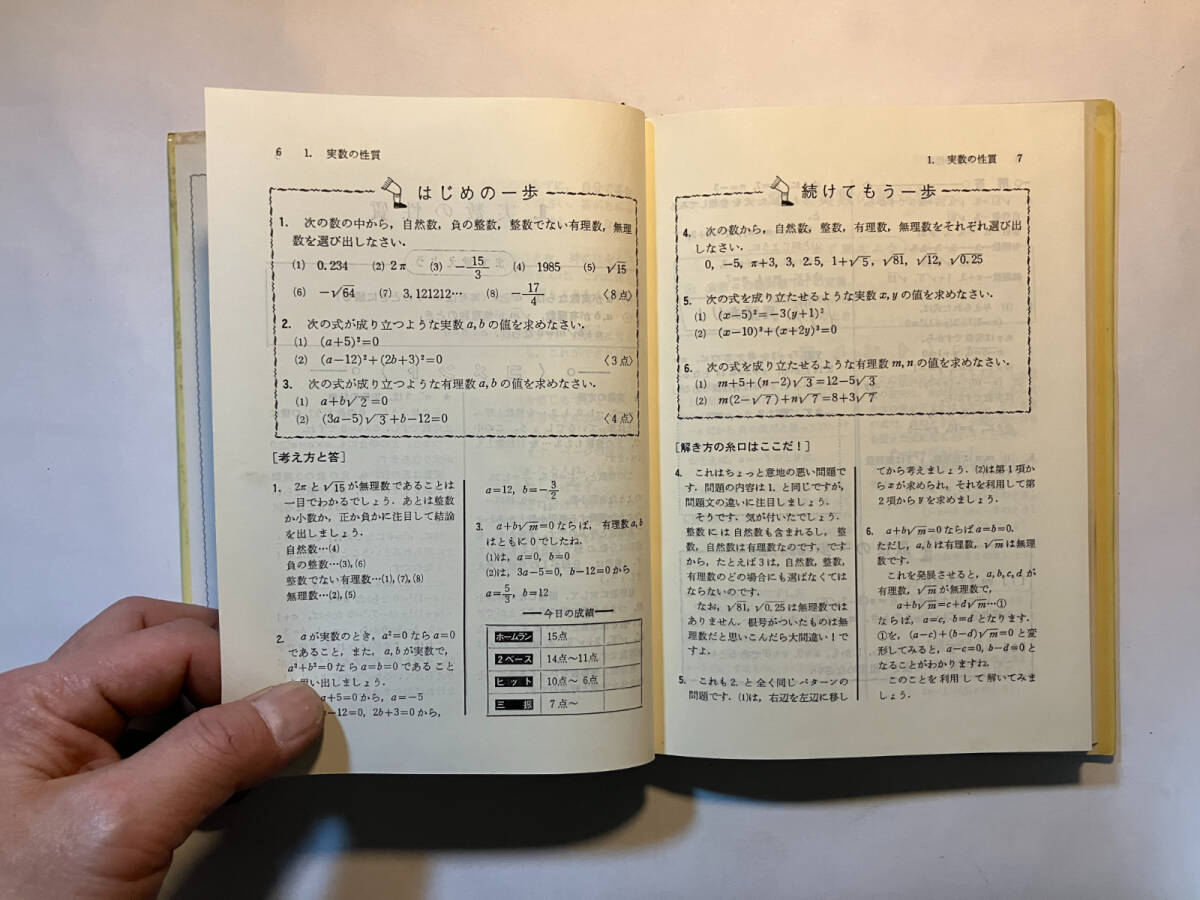 6 1. 実数の性質
はじめの一歩
1. 次の数の中から，自然数，負の整数，整数でない有理数，無理
数を選び出しなさい．
(1) 0.234 (2) 2π (3) −15/3 (4) 1985 (5) √15
(6) −√64 (7) 3,121212… (8) −17/4 〈8点〉
2. 次の式が成り立つような実数a, bの値を求めなさい．
(1) (a+5)²=0
(2) (a−12)²+(2b+3)²=0 〈3点〉
3. 次の式が成り立つような有理数a, bの値を求めなさい．
(1) a+b√2=0
(2) (3a−5)√3+b−12=0 〈4点〉
[考え方と答]
1. 2πと√15が無理数であることは
一目でわかるでしょう．あとは整数
か小数か，正か負かに注目して結論
を出しましょう．
自然数…(4)
負の整数…(3),(6)
整数でない有理数…(1),(7),(8)
無理数…(2),(5)
2. aが実数のとき，a²=0ならa=0
であること，また，a, bが実数で，
a²+b²=0ならa=b=0であること
思い出しましょう．
a+5=0から，a=−5
−12=0, 2b+3=0から，
a=12, b=−3/2
3. a+b√m=0ならば，有理数a, b
はともに0でしたね．
(1)は，a=0, b=0
(2)は，3a−5=0, b−12=0から
a=5/3, b=12
今日の成績
ホームラン 15点
2ベース 14点〜11点
ヒット 10点〜 6点
三振 7点〜
1. 実数の性質 7
続けてもう一歩
4. 次の数から，自然数，整数，有理数，無理数をそれぞれ選び出
しなさい．
0, −5, π+3, 3, 2.5, 1+√5, √81, √12, √0.25
5. 次の式を成り立たせるような実数x, yの値を求めなさい．
(1) (x−5)²=−3(y+1)²
(2) (x−10)²+(x+2y)²=0
6. 次の式を成り立たせるような有理数m, nの値を求めなさい．
(1) m+5+(n−2)√3=12−5√3
(2) m(2−√7)+n√7=8+3√7
[解き方の糸口はここだ！]
4. これはちょっと意地の悪い問題で
す．問題の内容は1.と同じですが，
問題文の違いに注目しましょう．
そうです．気が付いたでしょう．
整数には自然数も含まれるし，整
数，自然数は有理数なのです．です
から，たとえば3は，自然数，整数，
有理数のどの場合にも選ばなくては
ならないのです．
なお，√81, √0.25は無理数では
ありません．根号がついたものは無
理数だと思いこんだら大間違い！で
すよ．
5. これも2.と全く同じパターンの
問題です．(1)は，右辺を左辺に移し
てから考えましょう．(2)は第1項か
らxが求められ，それを利用して第
2項からyを求めましょう．
6. a+b√m=0ならばa=b=0．
ただし，a, bは有理数，√mは無理
数です．
これを発展させると，a, b, c, dが
有理数，√mが無理数で，
a+b√m=c+d√m…①
ならば，a=c, b=dとなります．
①を，(a−c)+(b−d)√m=0と変
形してみると，a−c=0, b−d=0と
なることがわかりますね．
このことを利用して解いてみま
しょう．